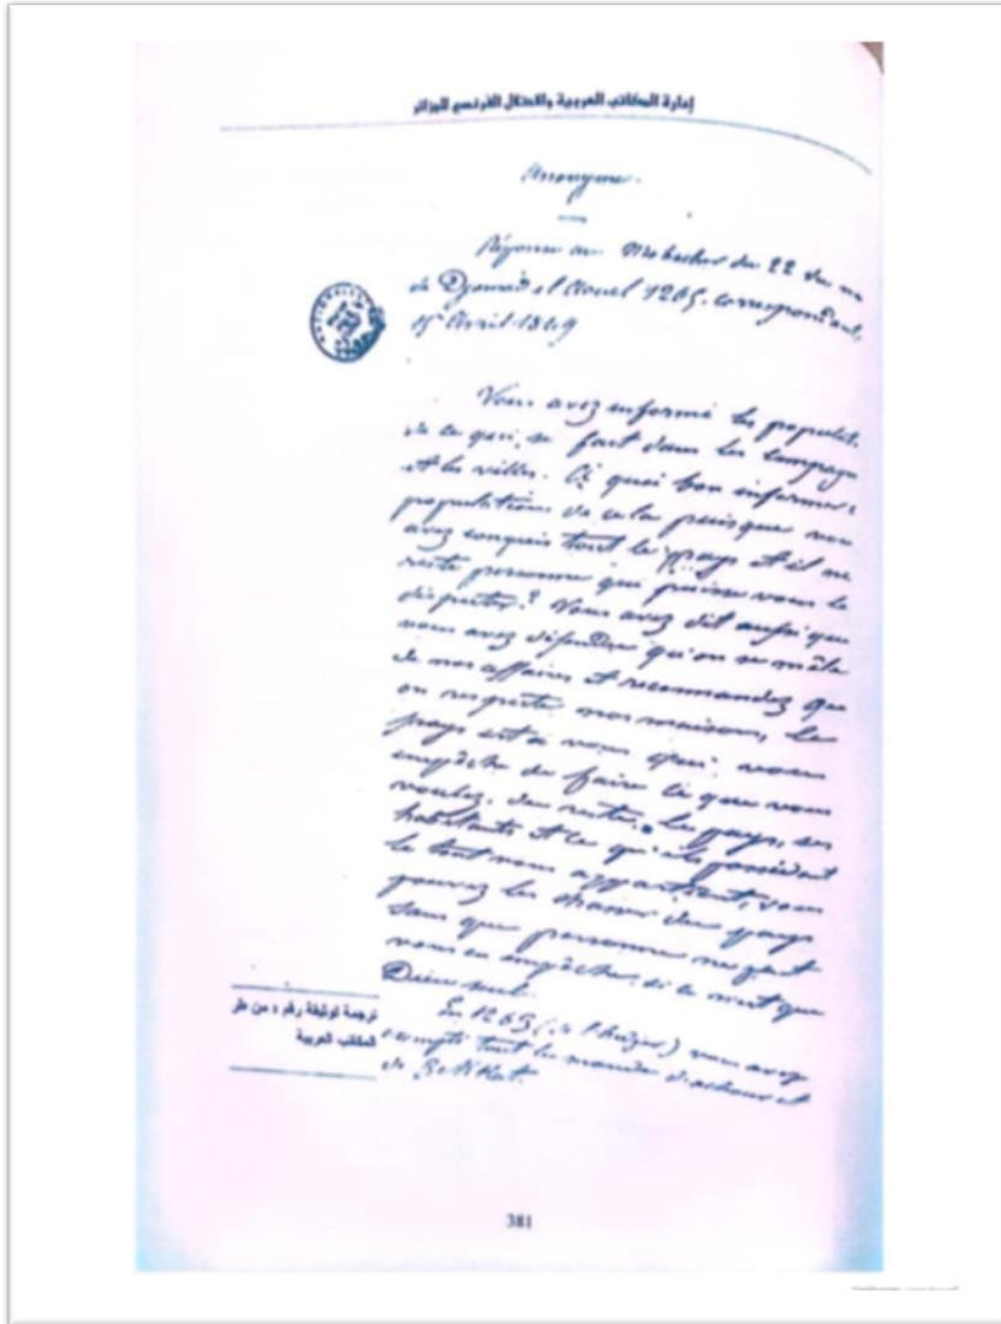 إدارة المكاتب العربية والاحتلال الفرنسي للجزائر
Anonyme.
Réponse au Mobacher du 22 du m
de Djoumad el Aouel 1265, correspondant
15 Avril 1849
Vous avez informé les populat.
de ce qui se fait dans les campagn
et les villes. A quoi bon informer
populations de cela puisque vous
avez conquis tout le pays et il ne
reste personne qui puisse vous le
disputer? Vous avez dit aussi que
vous avez défendu qu'on se mêle
de nos affaires et recommandez que
on respecte nos maisons, le
pays est à vous qui vous
empêche de faire ce que vous
voulez. du reste, le pays, ses
habitants et ce qu'ils possèdent
le tout vous appartient, vous
pouvez les chasser du pays
sans que personne ne peut
vous en empêcher, si ce n'est que
Dieu seul.
En 1265 (de l'hégire) vous avez
exempté tout le monde d'achour et
de Zekkat.
ترجمة لوثيقة رقم من
المكاتب العربية
381